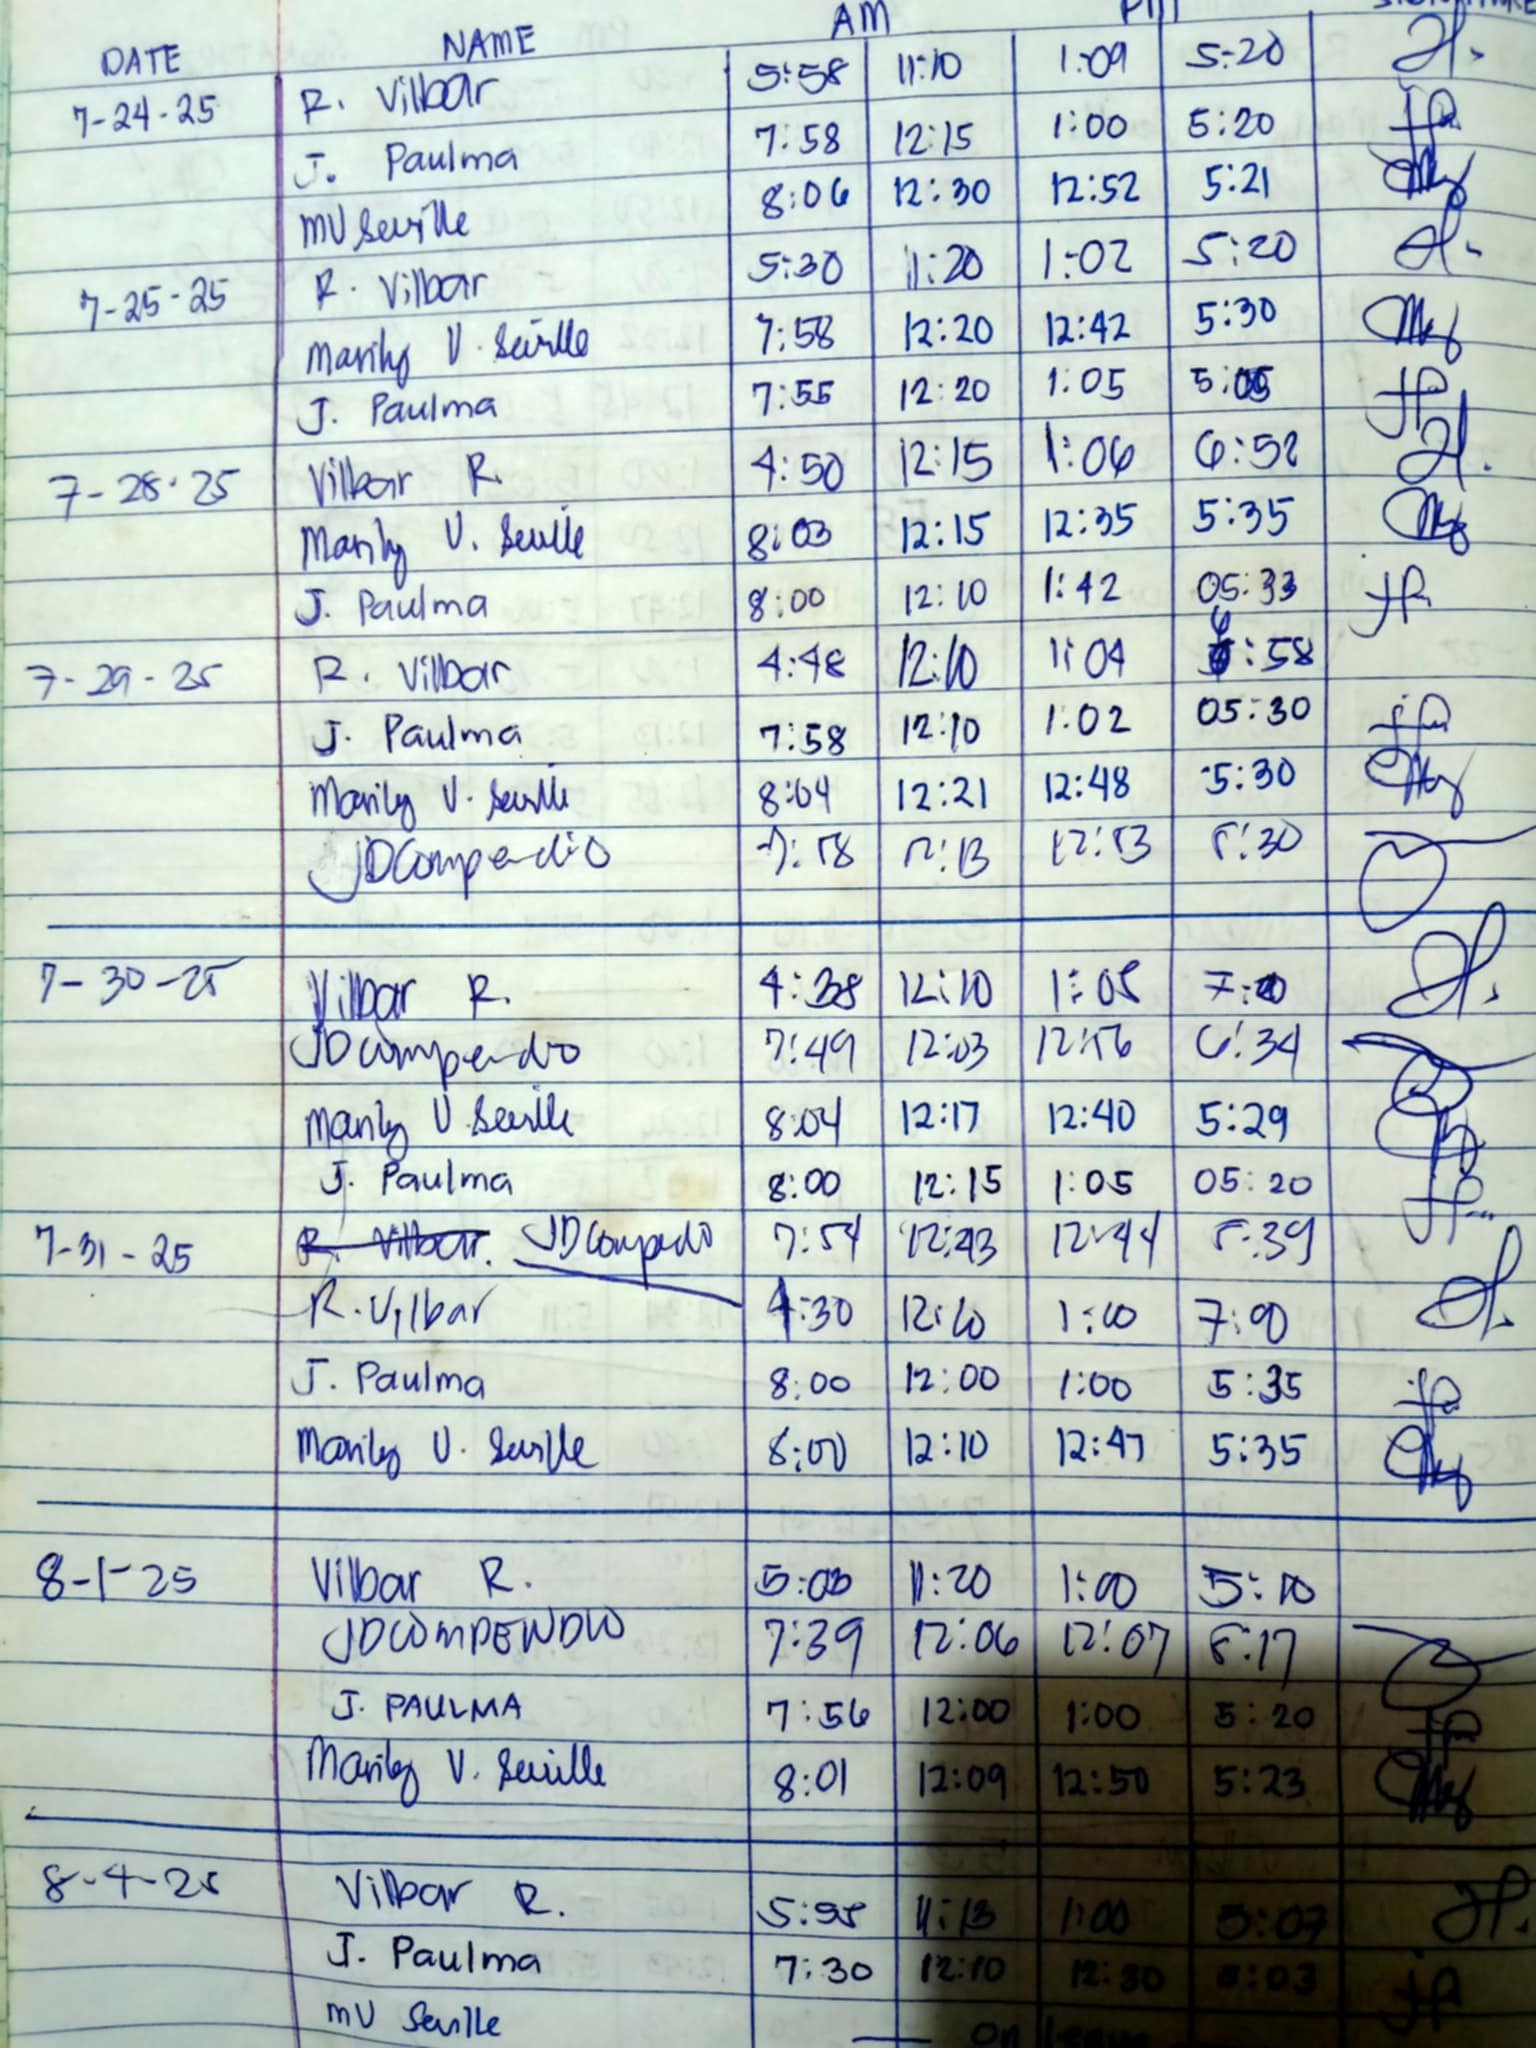 DATE NAME AM PM SIGNATURE
7-24-25 R. Vilbar 5:58 11:10 1:09 5:20
J. Paulma 7:58 12:15 1:00 5:20
MV Seville 8:06 12:30 12:52 5:21
7-25-25 R. Vilbar 5:30 11:20 1:02 5:20
Marily V. Seville 7:58 12:20 12:42 5:30
J. Paulma 7:55 12:20 1:05 5:05
7-28-25 Vilbar R. 4:50 12:15 1:06 6:52
Marily V. Seville 8:03 12:15 12:35 5:35
J. Paulma 8:00 12:10 1:42 05:33
7-29-25 R. Vilbar 4:48 12:10 1:04 6:58
J. Paulma 7:58 12:10 1:02 05:30
Marily V. Seville 8:04 12:21 12:48 5:30
JDCompendio 7:58 12:13 12:53 5:30
7-30-25 Vilbar R. 4:38 12:10 1:05
JDCompendio 7:49 12:03 12:56 6:34
Marily V Seville 8:04 12:17 12:40 5:29
J. Paulma 8:00 12:15 1:05 05:20
7-31-25 R. Vilbar. JDCompendio 7:54 12:43 12:44 5:39
R. Vilbar 4:30 12:10 1:10 7:00
J. Paulma 8:00 12:00 1:00 5:35
Marily V. Seville 8:00 12:10 12:47 5:35
8-1-25 Vilbar R. 5:00 11:20 1:00 5:10
JDCOMPENDIO 7:39 12:06 12:07 5:17
J. PAULMA 7:56 12:00 1:00 5:20
Marily V. Seville 8:01 12:09 12:50 5:23
8-4-25 Vilbar R. 11:13 1:00 5:07
J. Paulma 7:30 12:10 12:30 5:03
MV Seville — on leave